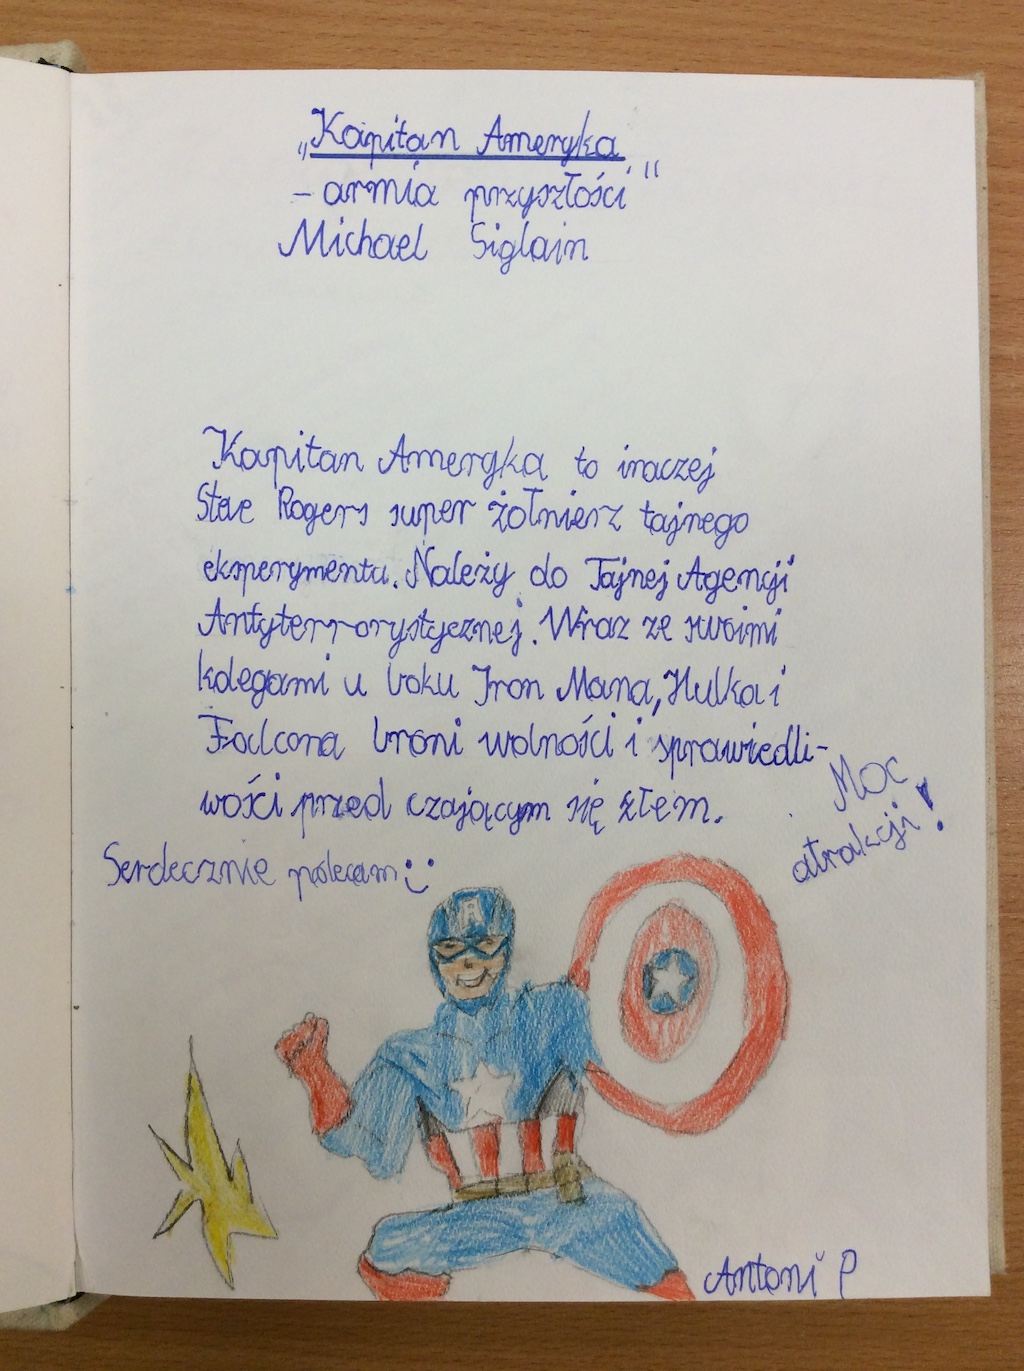 „Kapitan Ameryka
- armia przyszłości"
Michael Siglain
Kapitan Ameryka to inaczej
Steve Rogers super żołnierz tajnego
eksperymentu. Należy do Tajnej Agencji
Antyterrorystycznej. Wraz ze swoimi
kolegami u boku Iron Mana, Hulka i
Falcona broni wolności i sprawiedli-
wości przed czającym się złem.
Moc
atrakcji!
Serdecznie polecam :)
A
Antoni P